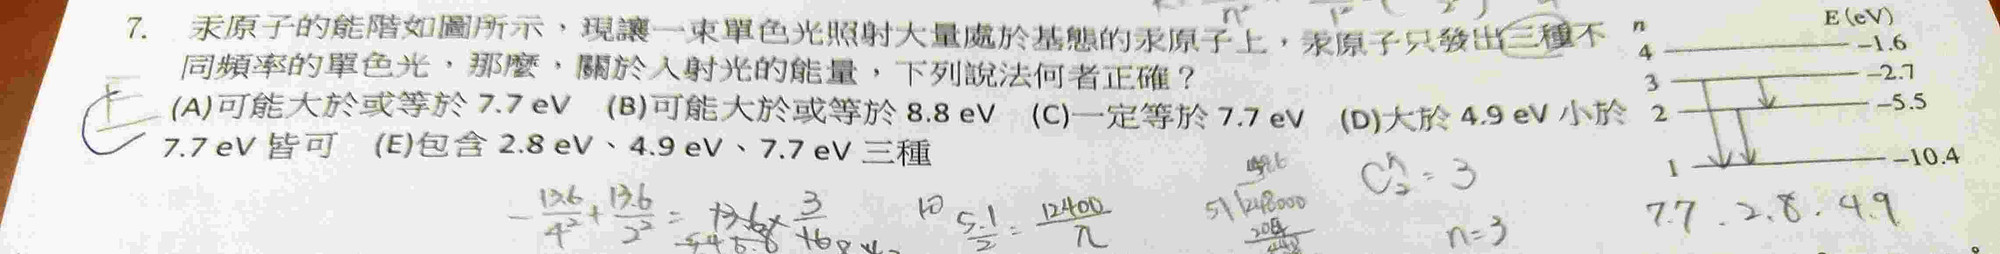 7. 汞原子的能階如圖所示，現讓一束單色光照射大量處於基態的汞原子上，汞原子只發出三種不
同頻率的單色光，那麼，關於入射光的能量，下列說法何者正確？
(A)可能大於或等於 7.7 eV (B)可能大於或等於 8.8 eV (C)一定等於 7.7 eV (D)大於 4.9 eV 小於
7.7 eV 皆可 (E)包含 2.8 eV、4.9 eV、7.7 eV 三種
n E (eV)
4 −1.6
3 −2.7
2 −5.5
1 −10.4
E
-13.6/4² + 13.6/2² = 13.6 × 3/16
5.1/2 = 12400/λ
51 248000
C₂ⁿ = 3
n=3
7.7 . 2.8 . 4.9